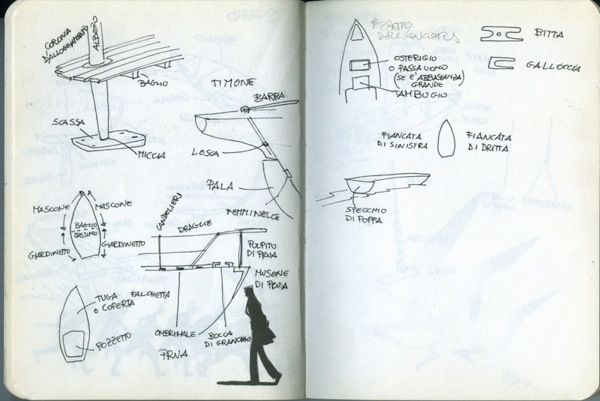 CORONA
D'ALLOGGIAMENTO
ALBERO
BAGLIO
SCASSA
MICCIA
TIMONE
BARRA
LOSCA
PALA
FEMMINELLE
MASCONE
MASCONE
BAGLIO
MASSIMO
GIARDINETTO
GIARDINETTO
CANDELIERI
DRAGLIE
PULPITO
DI PRUA
MUSONE
DI PRUA
FALCHETTA
OMBRINALE
BOCCA
DI GRANCHIO
PRUA
TUGA
O COPERTA
POZZETTO
OSTERIGIO
O PASSA UOMO
(SE E' ABBASTANZA
GRANDE
TAMBUGIO
BITTA
GALLOCCIA
FIANCATA
DI SINISTRA
FIANCATA
DI DRITTA
SPECCHIO
DI POPPA